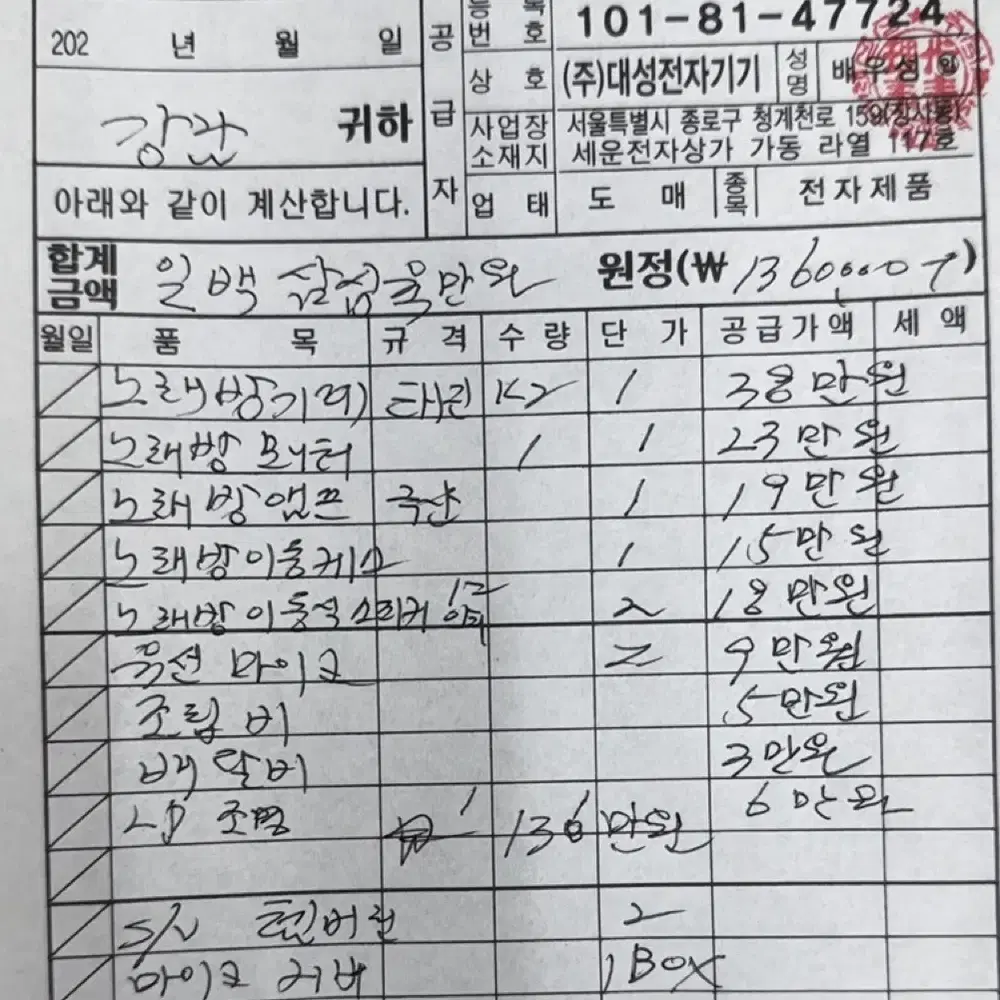 등 록 번 호 101-81-47724
202 년 월 일 공 급 자
상 호 (주)대성전자기기 성명 배우성 ㊞
귀하
사업장 소재지 서울특별시 종로구 청계천로 159(장사동)
세운전자상가 가동 라열 117호
아래와 같이 계산합니다. 업 태 도 매 종목 전자제품
합계 금액 일백 삼십육만원 원정(₩ 1360,000 )
월일 품 목 규 격 수 량 단 가 공급가액 세 액
노래방기기 태진 K2 1 38만원
노래방 모니터 1 1 23만원
노래방앰프 국산 1 19만원
노래방이동케스 1 15만원
노래방이동식스피커 12 2 18만원
유선 마이크 2 9만원
조립비 5만원
배달비 3만원
LD 조명 1 1 6만원
₩ 136만원
S/V 탬버린 2
마이크 커버 1 BOX